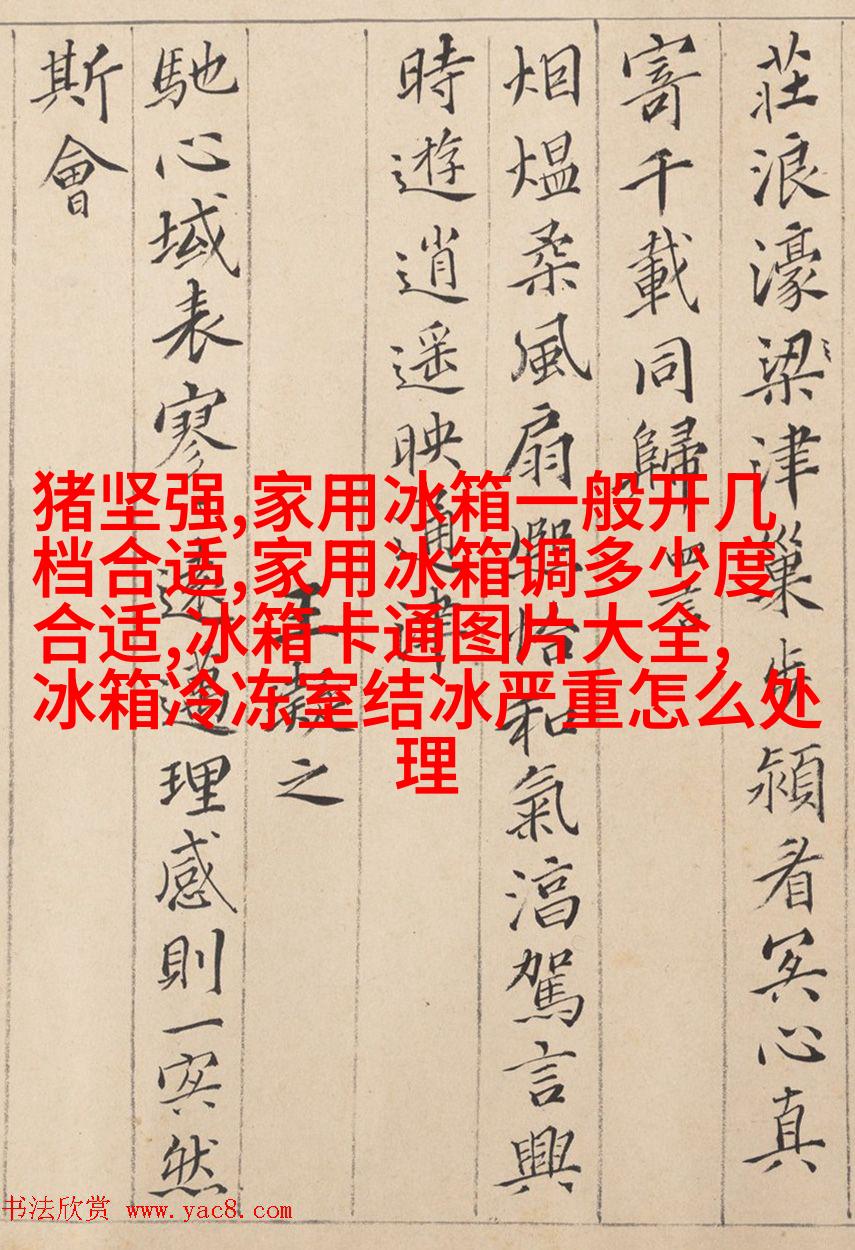 莊浪濠梁津巢步潁看冥心真
寄千載同歸 四言
烟煴柔風扇熙怡和氣淯駕言興
時遊逍遥映通津
王凝之
馳心域表寥寥遠邁理感則一冥然
斯會
猪坚强,家用冰箱一般开几
档合适,家用冰箱调多少度
合适,冰箱卡通图片大全,
冰箱冷冻室结冰严重怎么处
理
书法欣赏 www.yac8.com